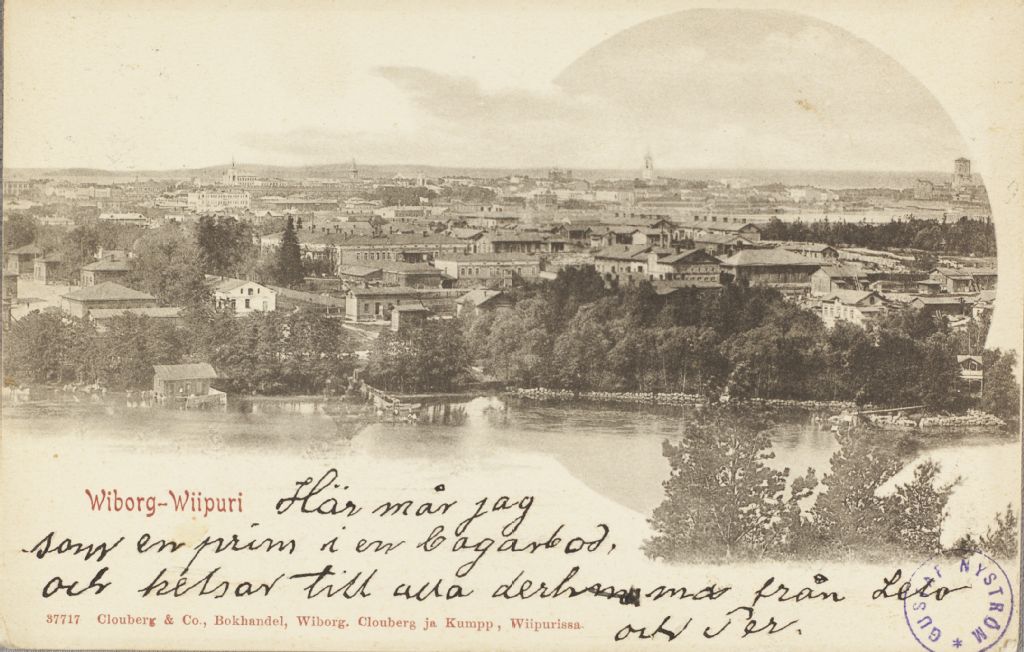 Wiborg-Wiipuri
Här mår jag
som en prins i en bagarbod,
och helsar till alla derhemma från Leto
och Per.
37717 Clouberg & Co., Bokhandel, Wiborg. Clouberg ja Kumpp, Wiipurissa.
GUSTAF NYSTRÖM *